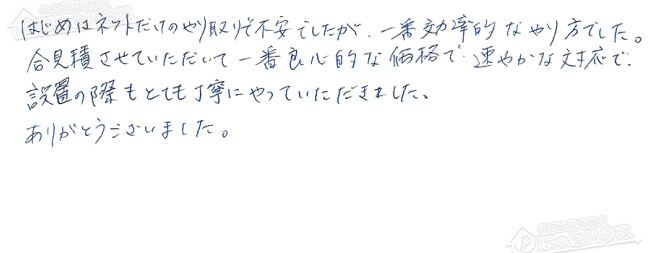 はじめはネットだけのやり取りで不安でしたが、一番効率的なやり方でした。
合見積させていただいて一番良心的な価格で、速やかな対応で、
設置の際もとても丁寧にやっていただきました。
ありがとうございました。